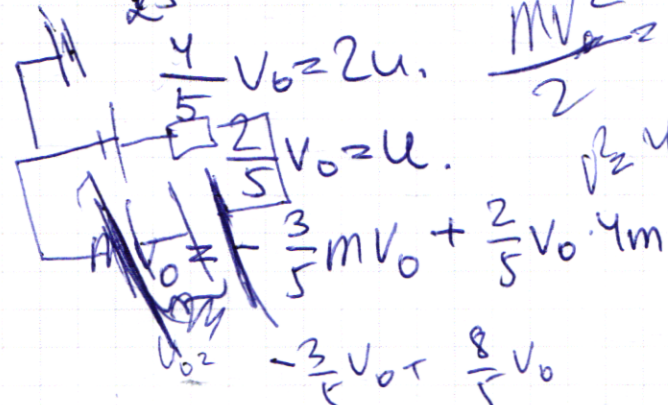 4/5 V₀ = 2u. mV₀²/2 =
2/5 V₀ = u.
mV₀ = - 3/5 mV₀ + 2/5 V₀ · 4m
V₀ = - 3/5 V₀ + 8/5 V₀